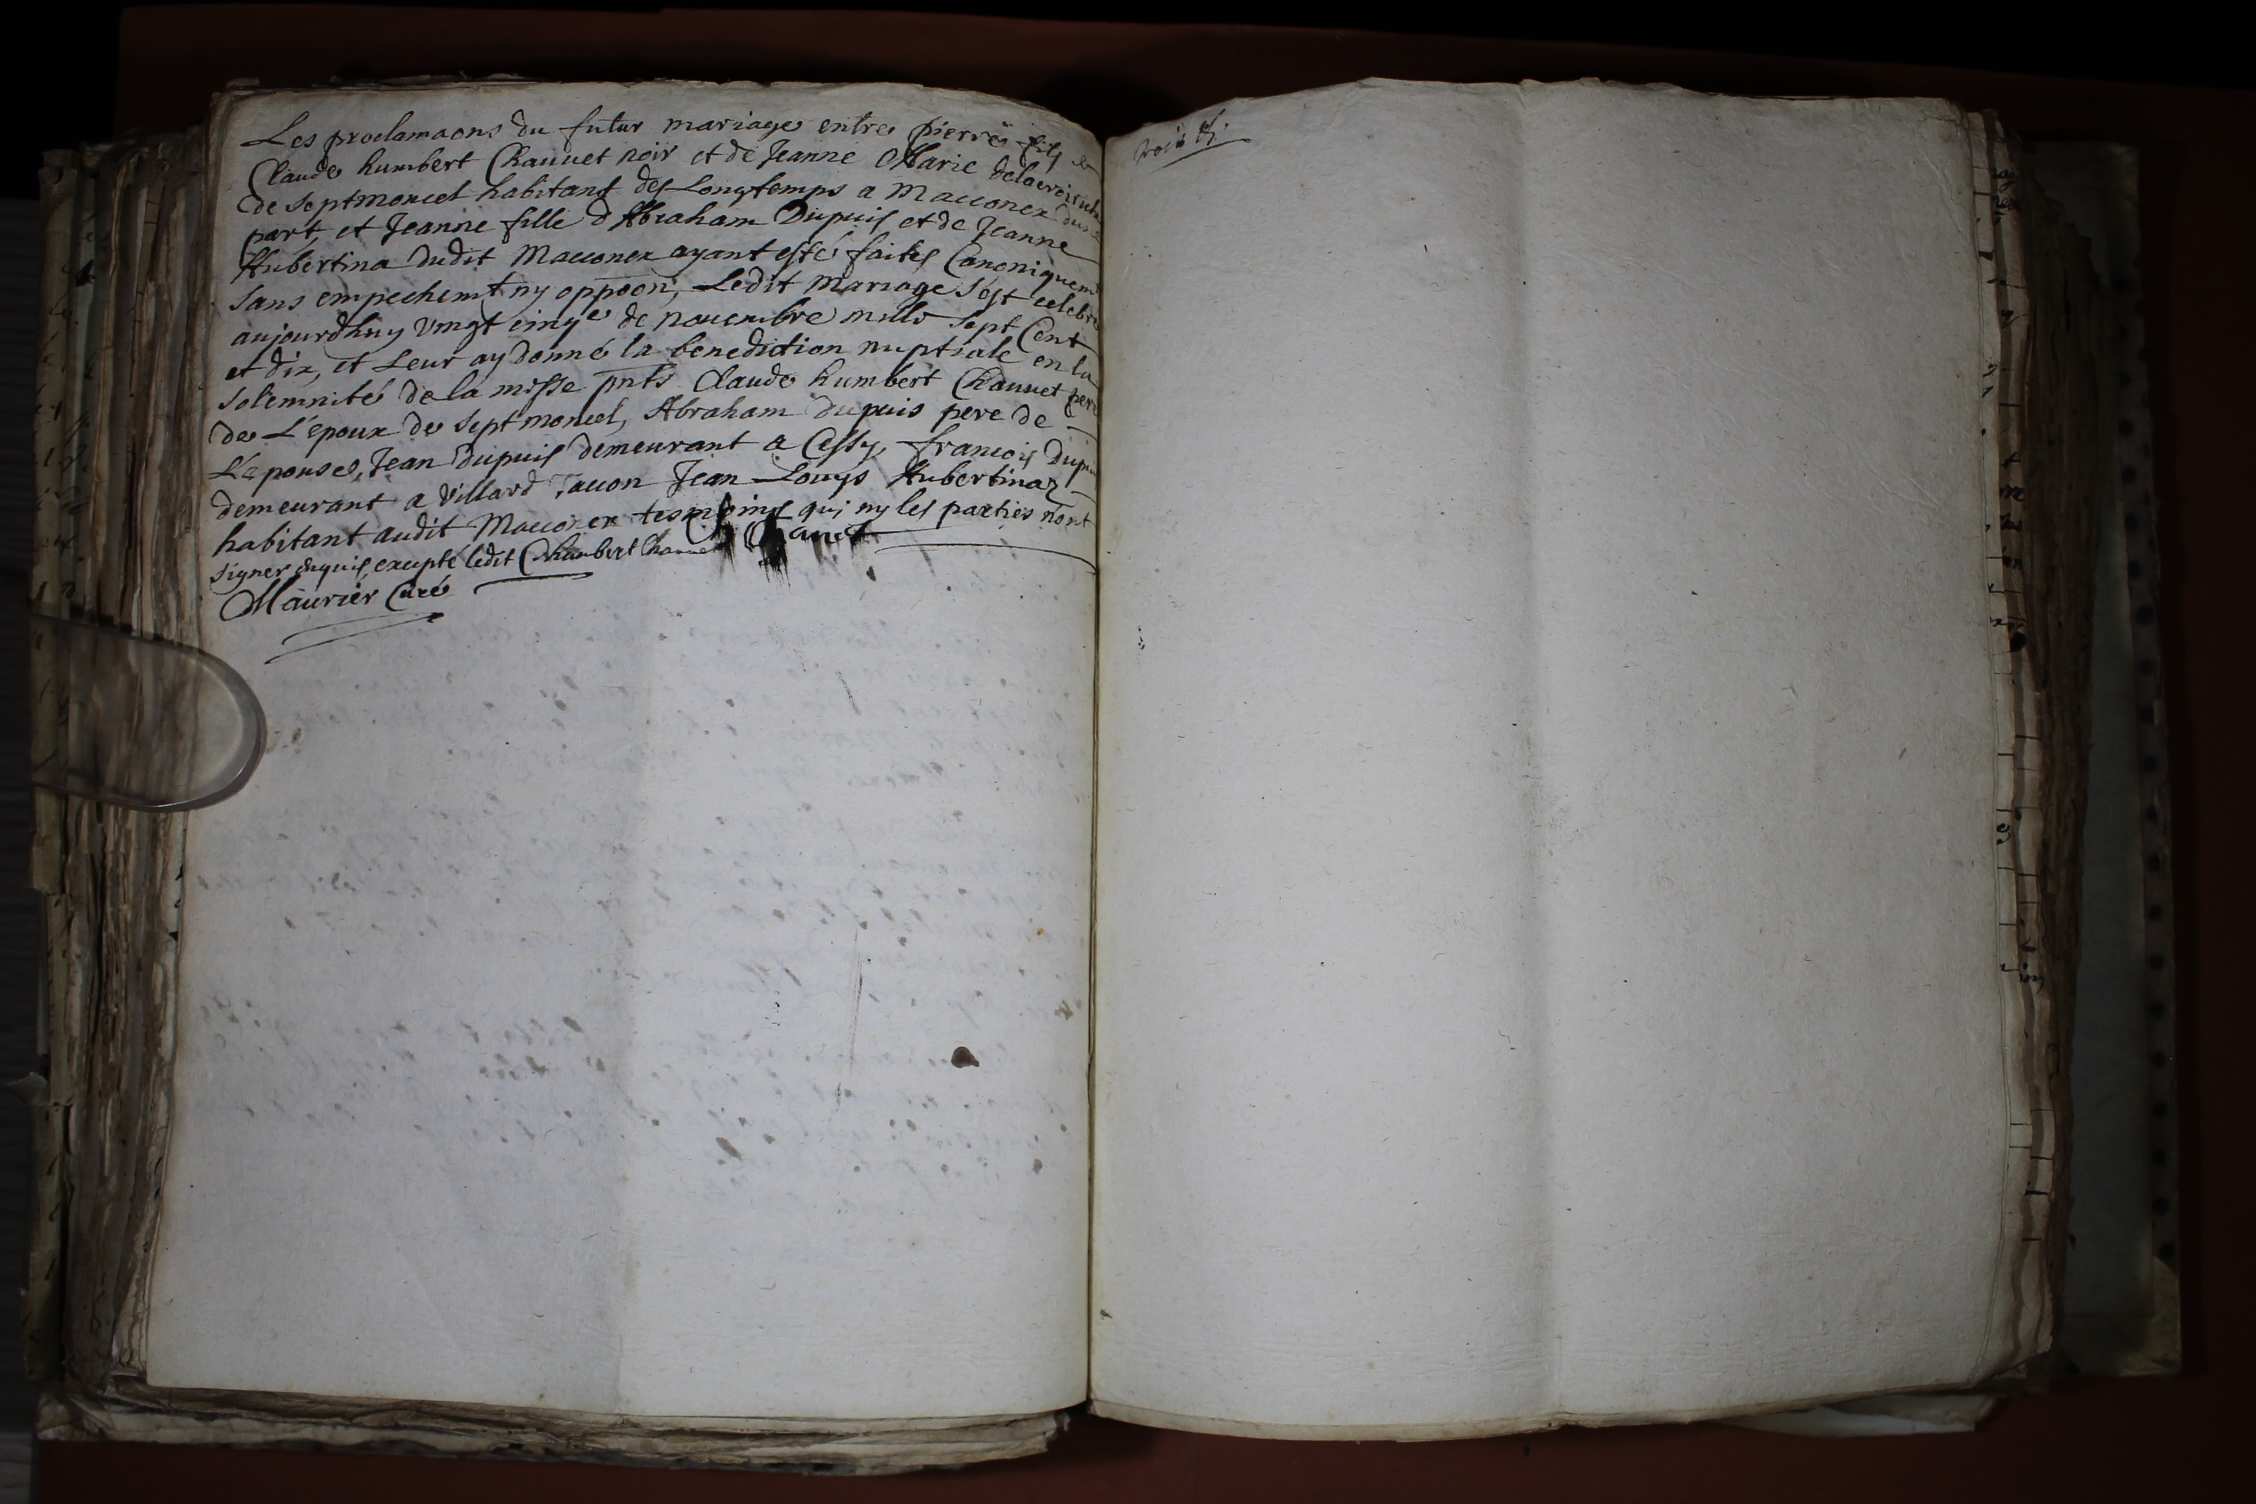 Les proclamaons du futur mariage entre pierre fils de
Claude humbert Chauuet noir et de Jeanne Marie
de septmoncel habitant des Longtemps a Macconex dune
part, et Jeanne fille d'Abraham Dupuis et de Jeanne
Hubertina dudit Macconex ayant esté faites Canoniquemt
sans empechemt ny oppoon, Ledit Mariage s'est celebré
aujourdhuy vingt cinqe de nouembre mille sept Cent
et dix, et Leur ay donné la benediction nuptiale en la
solemnité de la messe pnts Claude humbert Chauuet pere
de L'epoux de septmoncel, Abraham dupuis pere de
L'epouse, Jean dupuis demeurant a Cessy, francois dupuis
demeurant a villard Taccon Jean Louys Hubertinaz
habitant audit Macconex tesmoins qui ny les parties n'ont
signer enquis, excepté ledit C humbert Chauuet
Maurier Curé